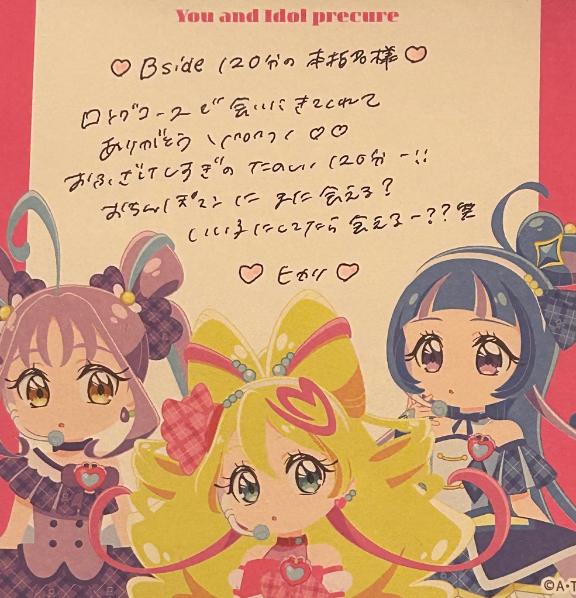 You and Idol precure
♡ Bside 120分の 本指名様 ♡
ロングコースで 会いにきてくれて
ありがとう ♡♡
おふざけしすぎの たのしい 120分ー!!
に また会える?
いい子にしてたら 会えるー??笑
♡ ヒカリ ♡
©A・T